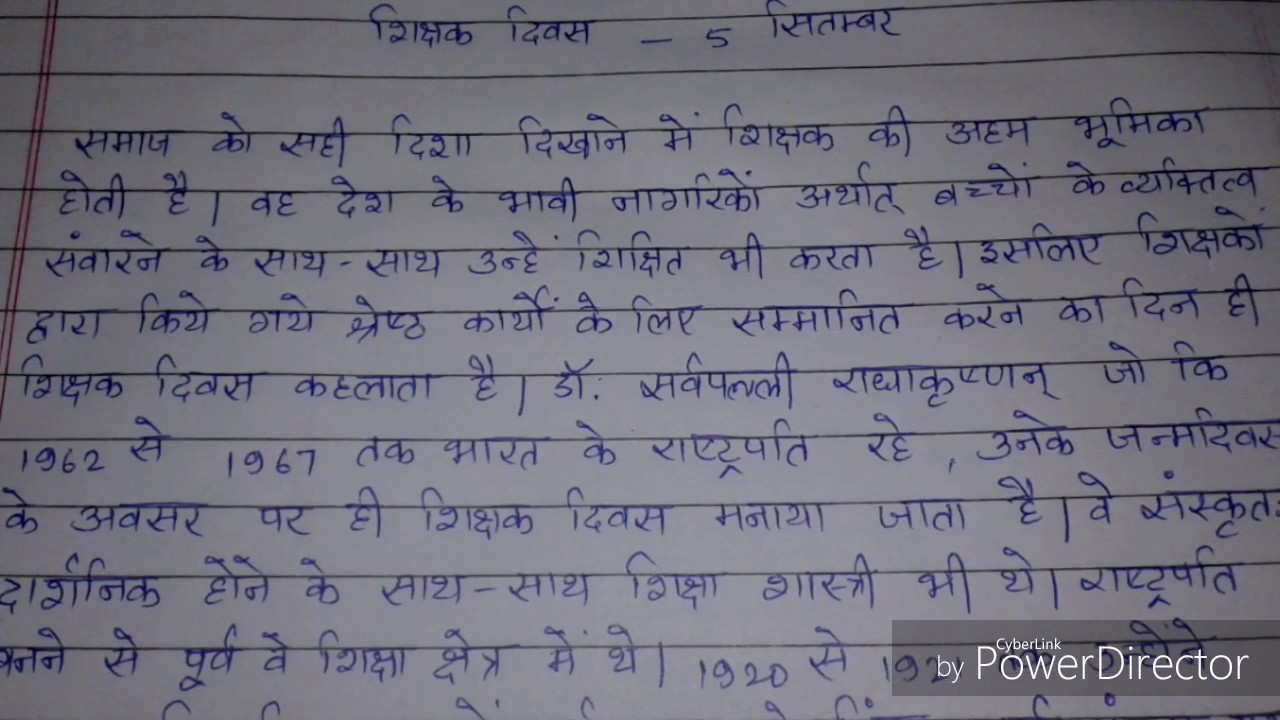 शिक्षक दिवस – 5 सितम्बर
समाज को सही दिशा दिखाने में शिक्षक की अहम भूमिका
होती है। वह देश के भावी नागरिकों अर्थात् बच्चों के व्यक्तित्व
संवारने के साथ-साथ उन्हें शिक्षित भी करता है। इसलिए शिक्षकों
द्वारा किये गये श्रेष्ठ कार्यों के लिए सम्मानित करने का दिन ही
शिक्षक दिवस कहलाता है। डॉ. सर्वपल्ली राधाकृष्णन् जो कि
1962 से 1967 तक भारत के राष्ट्रपति रहे, उनके जन्मदिवस
के अवसर पर ही शिक्षक दिवस मनाया जाता है। वे संस्कृत
दार्शनिक होने के साथ-साथ शिक्षा शास्त्री भी थे। राष्ट्रपति
बनने से पूर्व वे शिक्षा क्षेत्र में थे। 1920 से
CyberLink
by PowerDirector